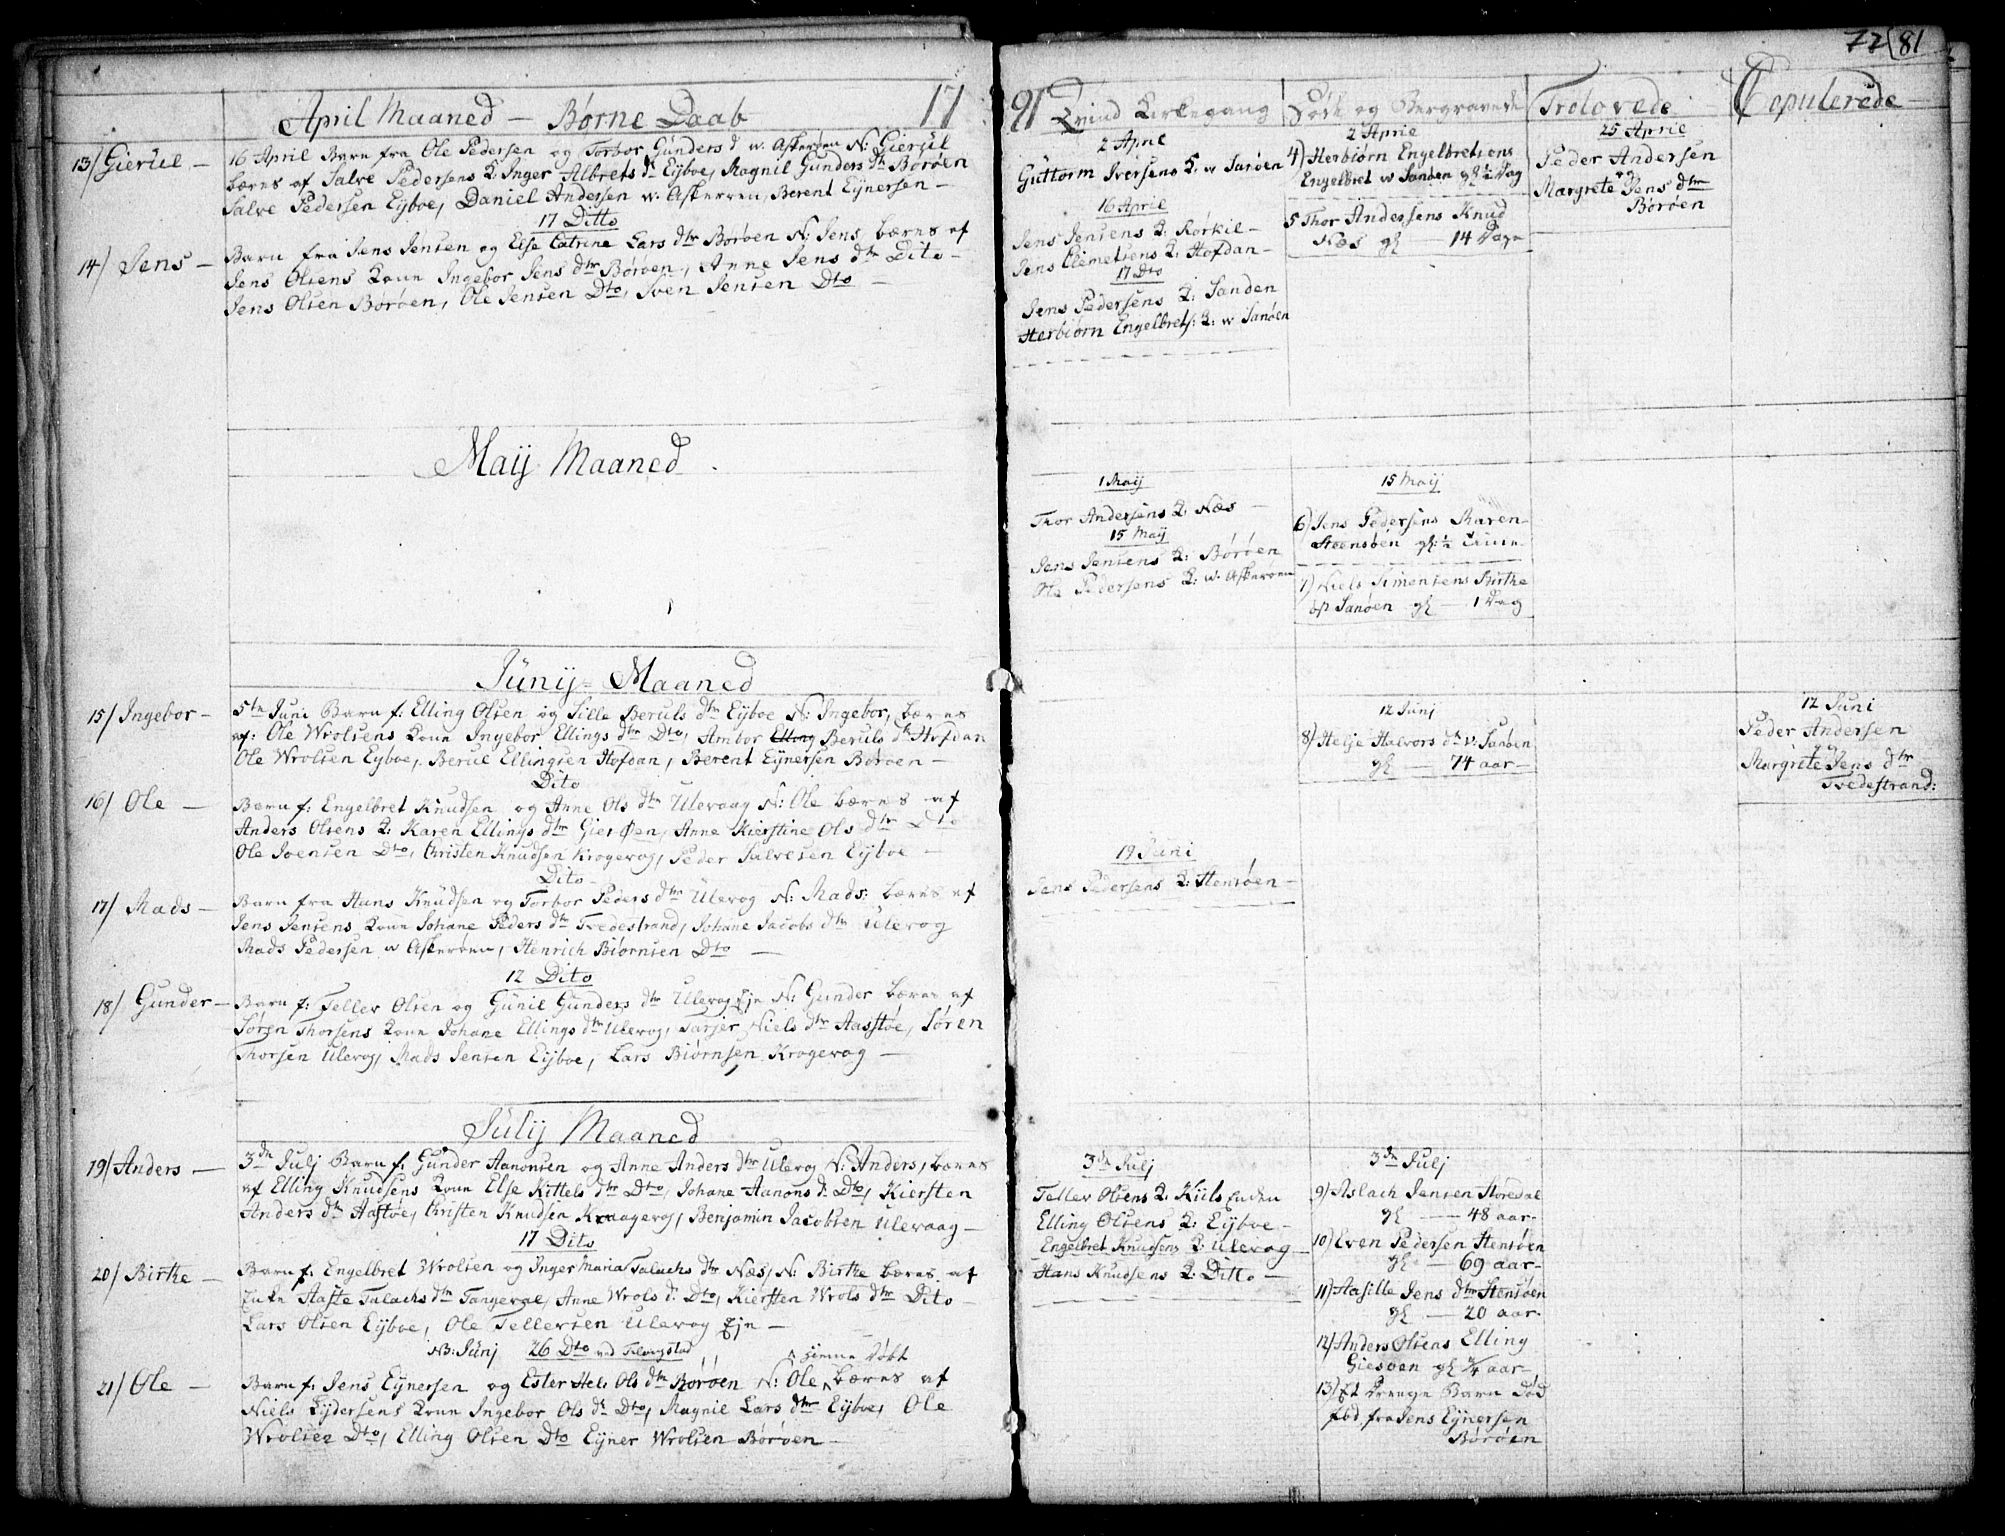 April Maaned — Børne Daab 17
13/ Gierul — 16 April Barn fra Ole Pedersen og Torbor Gunders d w. Askerøen N: Gierul
bæres af Salve Pedersens K: Inger Albrets d: Eijboe, Magnil Gunders dtr Borøen
Salve Pedersen Eijboe, Daniel Andersen w. Askerøen, Berent Eijnersen —
17 Ditto
14/ Jens — Barn fra Jens Jensen og Else Catrine Lars dtr Borøen N: Jens bæres af
Jens Olsens Kone Ingebor Jens dtr Borøen, Anne Jens dtr Dito —
Jens Olsen Borøen, Ole Jensen Dto, Sven Jensen Dto —
Maij Maaned
Junij Maaned
15/ Ingebor — 5te Juni Barn f: Elling Olsen og Sille Beruls dtr Eijboe N: Ingebor, bæres
af: Ole Wrolsens Kone Ingebor Ellings dtr Dto, Ambor Beruls dtr Hofdan
Ole Wrolsen Eyboe, Berul Ellingsen Hofdan, Berent Eijnersen Borøen —
Dito
16/ Ole — Barn f: Engelbret Knudsen og Anne Ols dtr Ulevaag N: Ole bæres af
Anders Olsens K: Karen Ellings dtr Gierøen, Anne Kierstine Ols dtr Dto
Ole Ivensen Dto, Christen Knudsen Krogevog, Peder Salvesen Eijboe —
Dito
17/ Mads — Barn fra Hans Knudsen og Torbor Peders dtr Ulevog N: Mads: bæres af
Jens Jensens Kone Johane Peders dtr Tvedestrand, Johane Jacobs dtr Ulevog
Mads Pedersen w Askerøen, Henrich Biørnsen Dto —
12 Dito
18/ Gunder — Barn f: Tellev Olsen og Gunil Gunders dtr Ulevog Eje N: Gunder bæres af
Søren Thorsens Kone Johane Ellings dtr Ulevog, Tarjer Niels dtr Aastøe, Søren
Thorsen Ulevog, Mads Jensen Eijboe, Lars Biørnsen Krogevog —
Julij Maaned
19/ Anders — 3de Julj Barn f: Gunder Aanonsen og Anne Anders dtr Ulevog N: Anders, bæres
af Elling Knudsens Kone Else Kittels dtr Dto, Johane Aanons d: Dto, Kiersten
Anders dtr Aastøe, Christen Knudsen Kraagevog, Benjamin Jacobsen Ulevaag —
17 Dito
20/ Birthe — Barn f: Engelbret Wrolsen og Inger Maria Talachs dtr Næs, N: Birthe bæres af
Enke Aaste Talachs dtr Tangeval, Anne Wrols d: Dto, Kiersten Wrols dtr Dito —
Lars Olsen Eijboe, Ole Tellevsen Ulevog Eje —
NB: Junj 26 Dto ved hjemme Døbt
21/ Ole — Barn f: Jens Eijnersen og Ester Ols dtr Borøen N: Ole bæres af
Niels Eijdersens Kone Ingebor Ols d: Dto, Magnil Lars dtr Eijboe, Ole
Wrolsen Dto, Elling Olsen Dto Eijner Wrolsen Borøen —
72 81
91 Qvind Kirkegang
2 April
Guttorm Iversens K: w Sanøen
16 April
Jens Jensens K: Rørkil —
Jens Clemetsens K: Hofdan —
17 Dto
Jens Pedersens K: Sanden
Herbiørn Engelbrets: K: w Sanøen
1 Maij
Thor Andersens K: Næs —
15 Maij
Jens Jensens K: Børøen
Ole Pedersens K: w. Askerøen
19 Juni
Jens Pedersens K: Stensøen —
3de Julj
Tellev Olsens K: Kiils Enden
Elling Olsens K: Eijboe —
Engelbret Knudsens K: Ulevog
Hans Knudsens K: Ditto —
Døde og Bergravede
2 Aprie
4) Herbiørn Engelbretsens
Engelbret w Sanøen gl ½ Dag
5 Thor Andersens Knud
Næs gl — 14 Dage
15 Maij
6) Jens Pedersens Maren —
Steensøen gl: ½
7) Niels Simensens Birthe
Sanøen gl — 1 Dag
12 Junj
8) Helje Halvors dtr v. Sanøen
gl — 74 aar —
3de Julj
9) Aslach Jensen Støredal
gl — 48 aar —
10) Even Pedersen Stensøen
gl — 69 aar —
11) Aasille Jens dtr Stensøen
gl — 20 aar —
12) Anders Olsens Elling
Giesøen gl ¾ aar —
13) Et Drenge Barn Død
fød fra Jens Eijnersen
Børøen
Trolovede
25 Aprie
Peder Andersen
og
Margrete Jens dtr
Børøen
Copulerede —
12 Juni
Peder Andersen
og
Margrete Jens dtr
Tvedestrand: